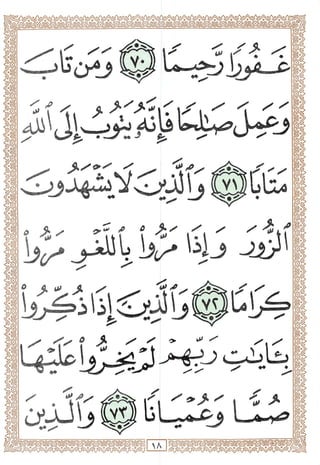 غَفُورًا رَّحِيمًا ﴿٧٠﴾ وَمَن تَابَ
وَعَمِلَ صَـٰلِحًا فَإِنَّهُۥ يَتُوبُ إِلَى ٱللَّهِ
مَتَابًا ﴿٧١﴾ وَٱلَّذِينَ لَا يَشْهَدُونَ
ٱلزُّورَ وَإِذَا مَرُّوا۟ بِٱللَّغْوِ مَرُّوا۟
كِرَامًا ﴿٧٢﴾ وَٱلَّذِينَ إِذَا ذُكِّرُوا۟
بِـَٔايَـٰتِ رَبِّهِمْ لَمْ يَخِرُّوا۟ عَلَيْهَا
صُمًّا وَعُمْيَانًا ﴿٧٣﴾ وَٱلَّذِينَ
١٨